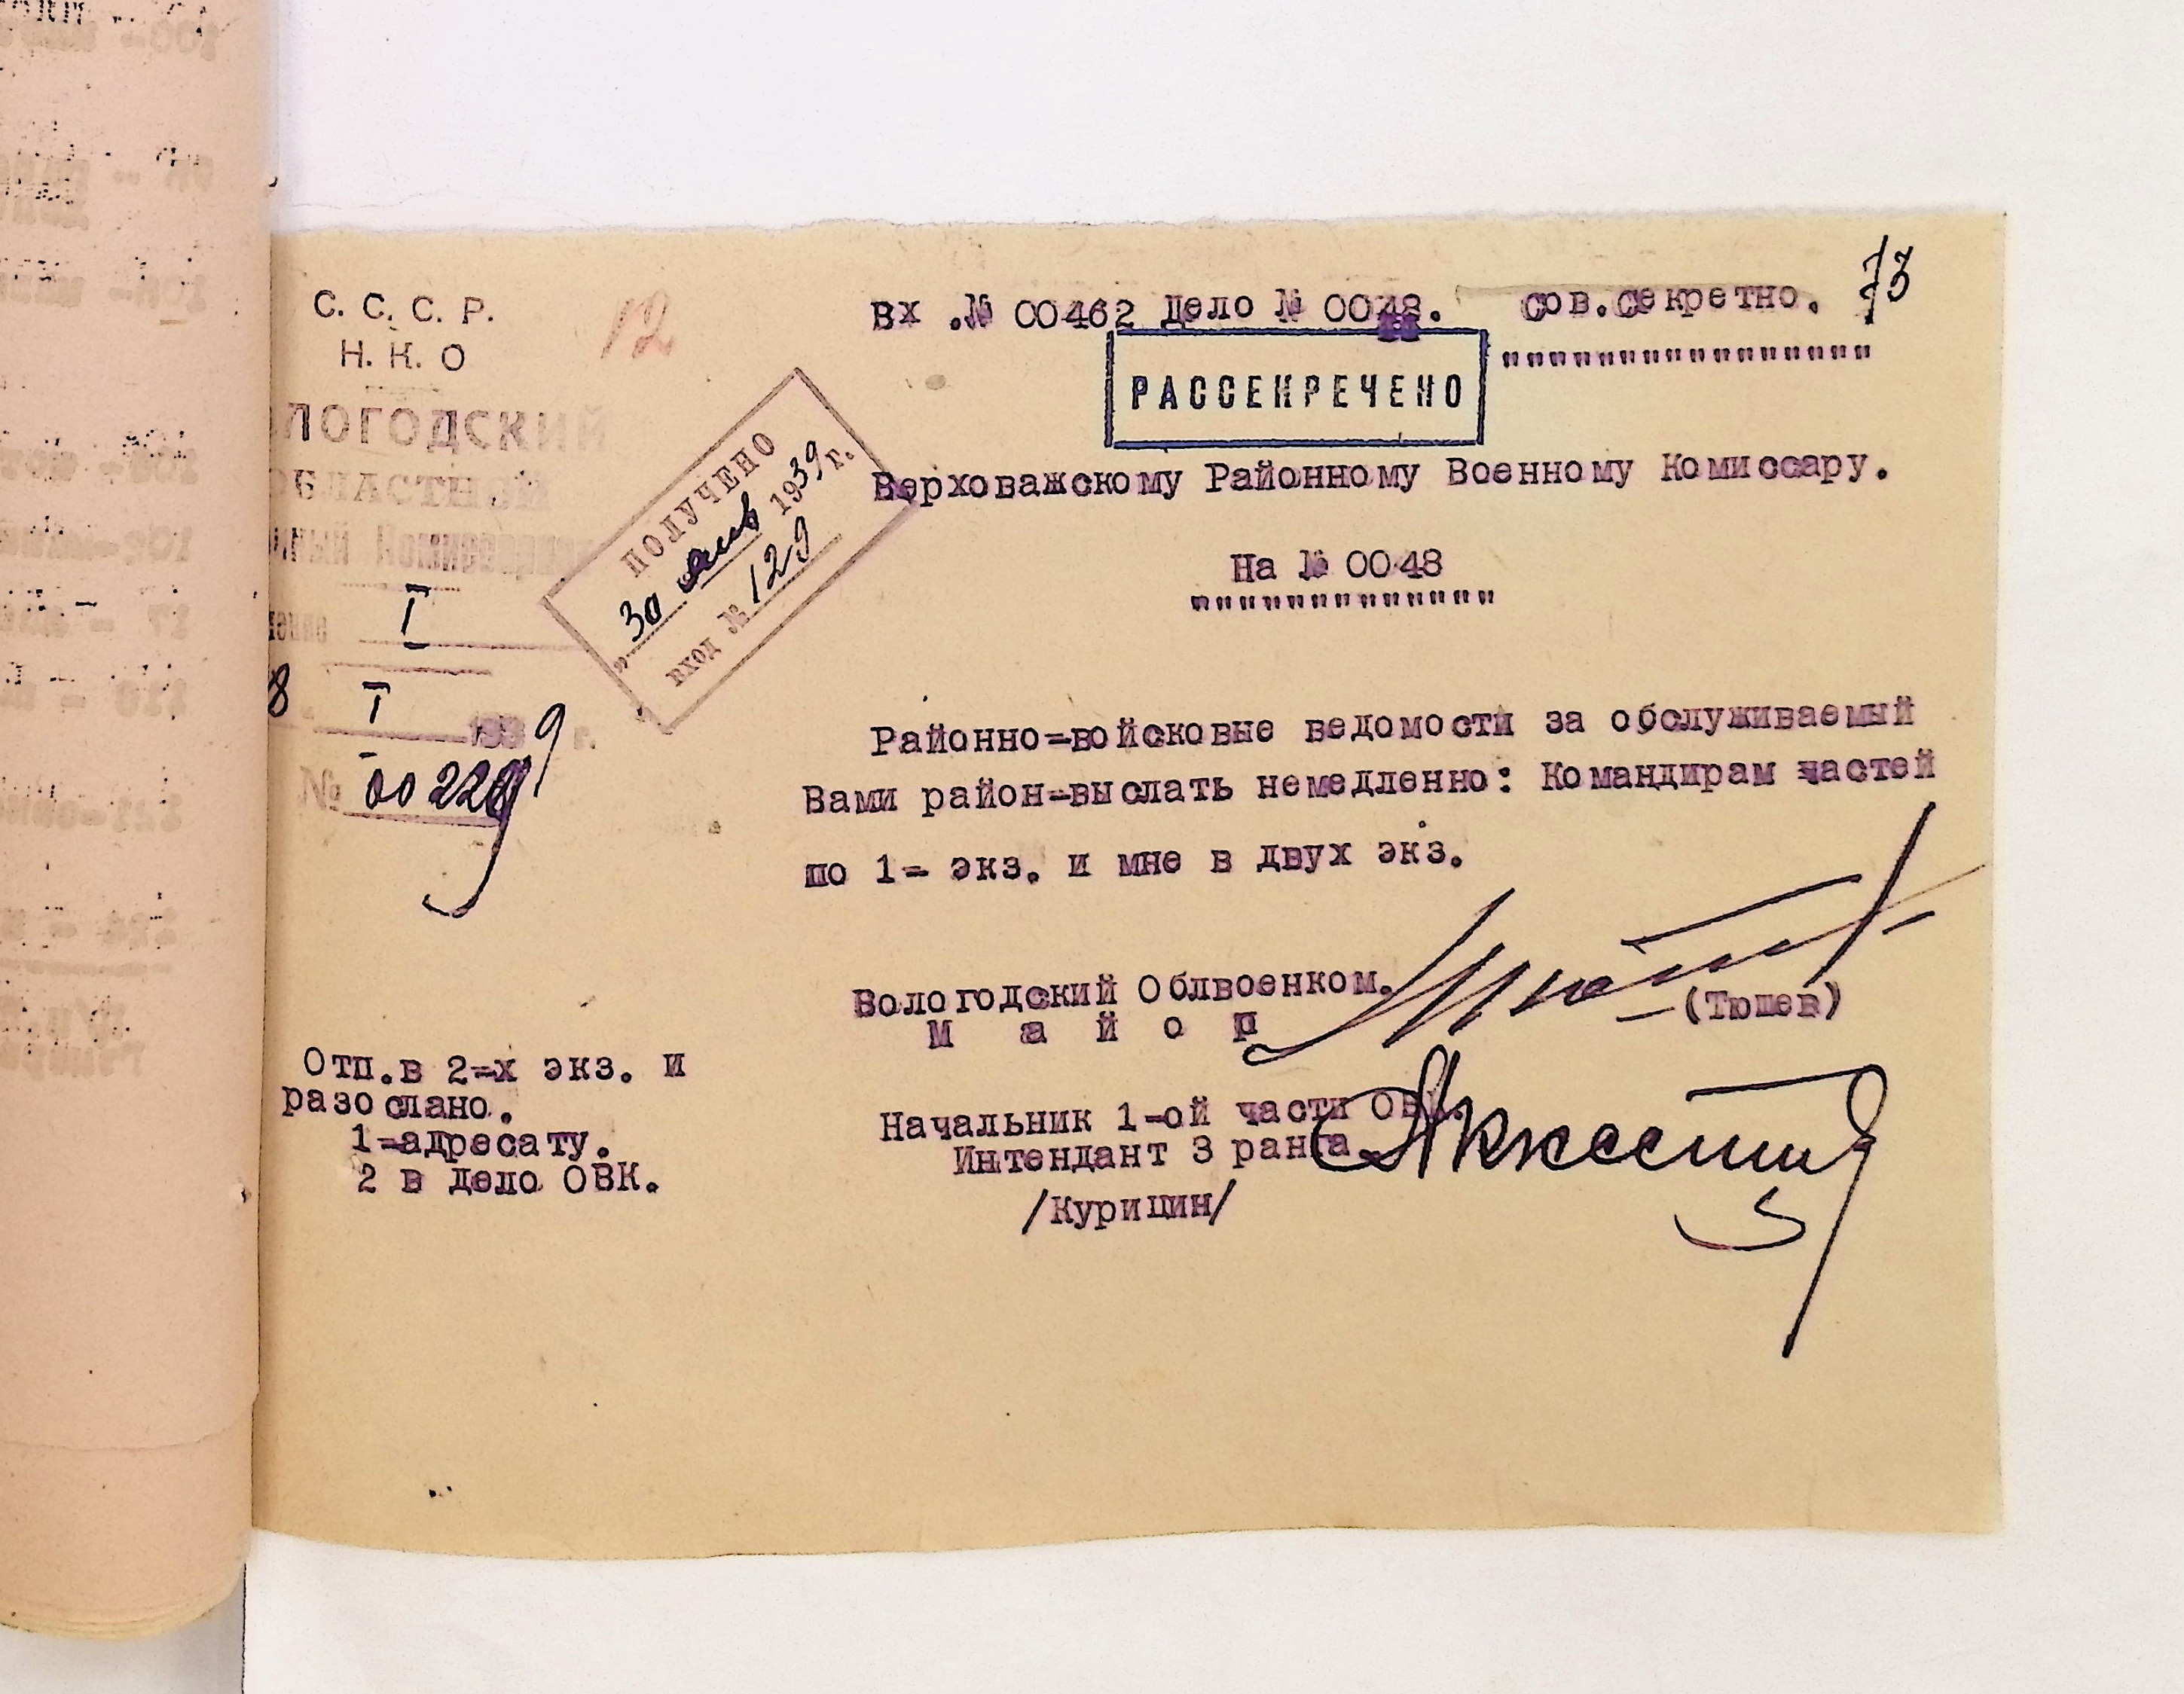 С. С. С. Р.
Н. К. О
ЛОГОДСКИЙ
ОБЛАСТНОЙ
I
8 I 1939 г.
№ 00229
12
ПОЛУЧЕНО
"30 янв 1939 г.
вход № 129
Вх .№ 00462 Дело № 0048. сов.секретно. 73
"""""""""""""""""
РАССЕКРЕЧЕНО
Верховажскому Районному Военному Комиссару.
На № 0048
""""""""""""""
Районно=войсковые ведомости за обслуживаемый
Вами район=выслать немедленно: Командирам частей
по 1= экз. и мне в двух экз.
Вологодский Облвоенком.
М а й о р
(Тюшев)
Начальник 1-ой части ОВК.
Интендант 3 ранга
/Курицин/
Отп.в 2=х экз. и
разослано.
1=адресату.
2 в дело ОВК.